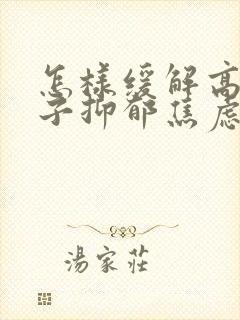 怎樣緩解高
子抑郁焦慮
湯家莊